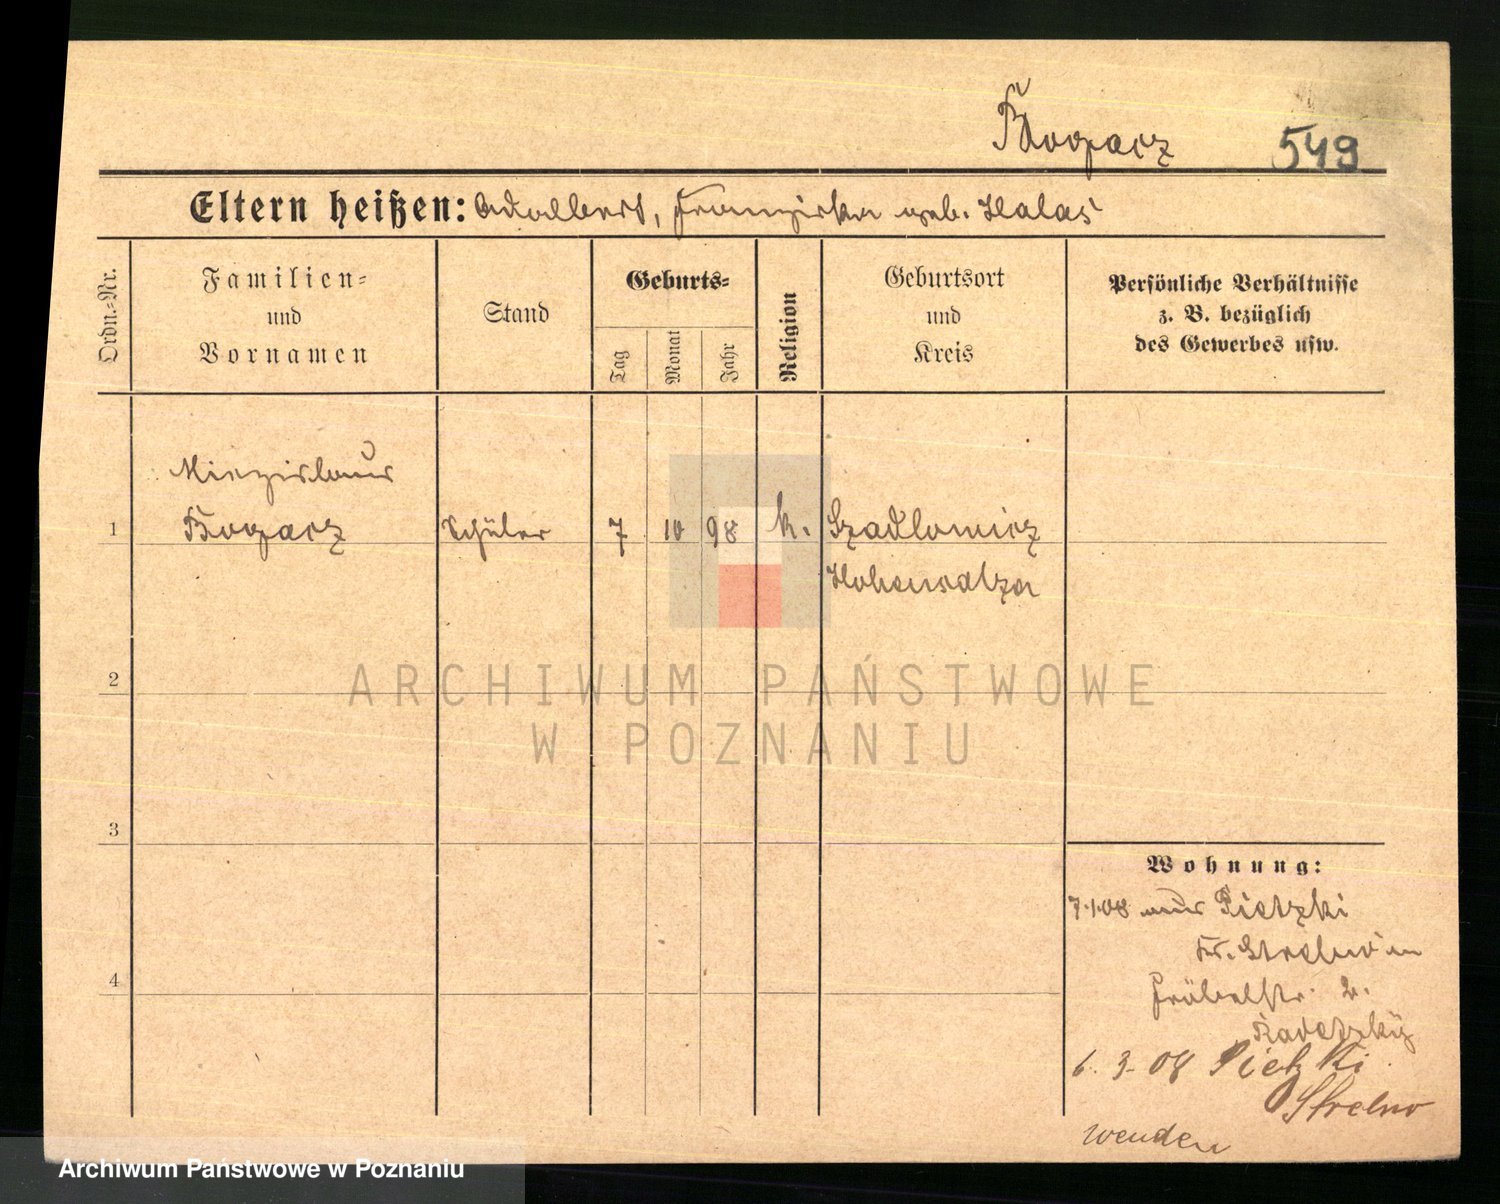 Bogacz 549
Eltern heißen: Adalbert, Franziska geb. Halas
Ordn.-Nr.
Familien-
und
Vornamen
Stand
Geburts-
Tag
Monat
Jahr
Religion
Geburtsort
und
Kreis
Persönliche Verhältnisse
z. B. bezüglich
des Gewerbes usw.
Miezislaus
1 Bogacz Schüler 7 10 98 k. Szadlowicz
Hohensalza
2
ARCHIWUM PAŃSTWOWE
W POZNANIU
3
Wohnung:
7.1.08 aus Pietzki
Kr. Strelno in
4
Fröbelstr. 2.
Radetzky
6. 3. 08 Pietzki
Strelno
wenden
Archiwum Państwowe w Poznaniu